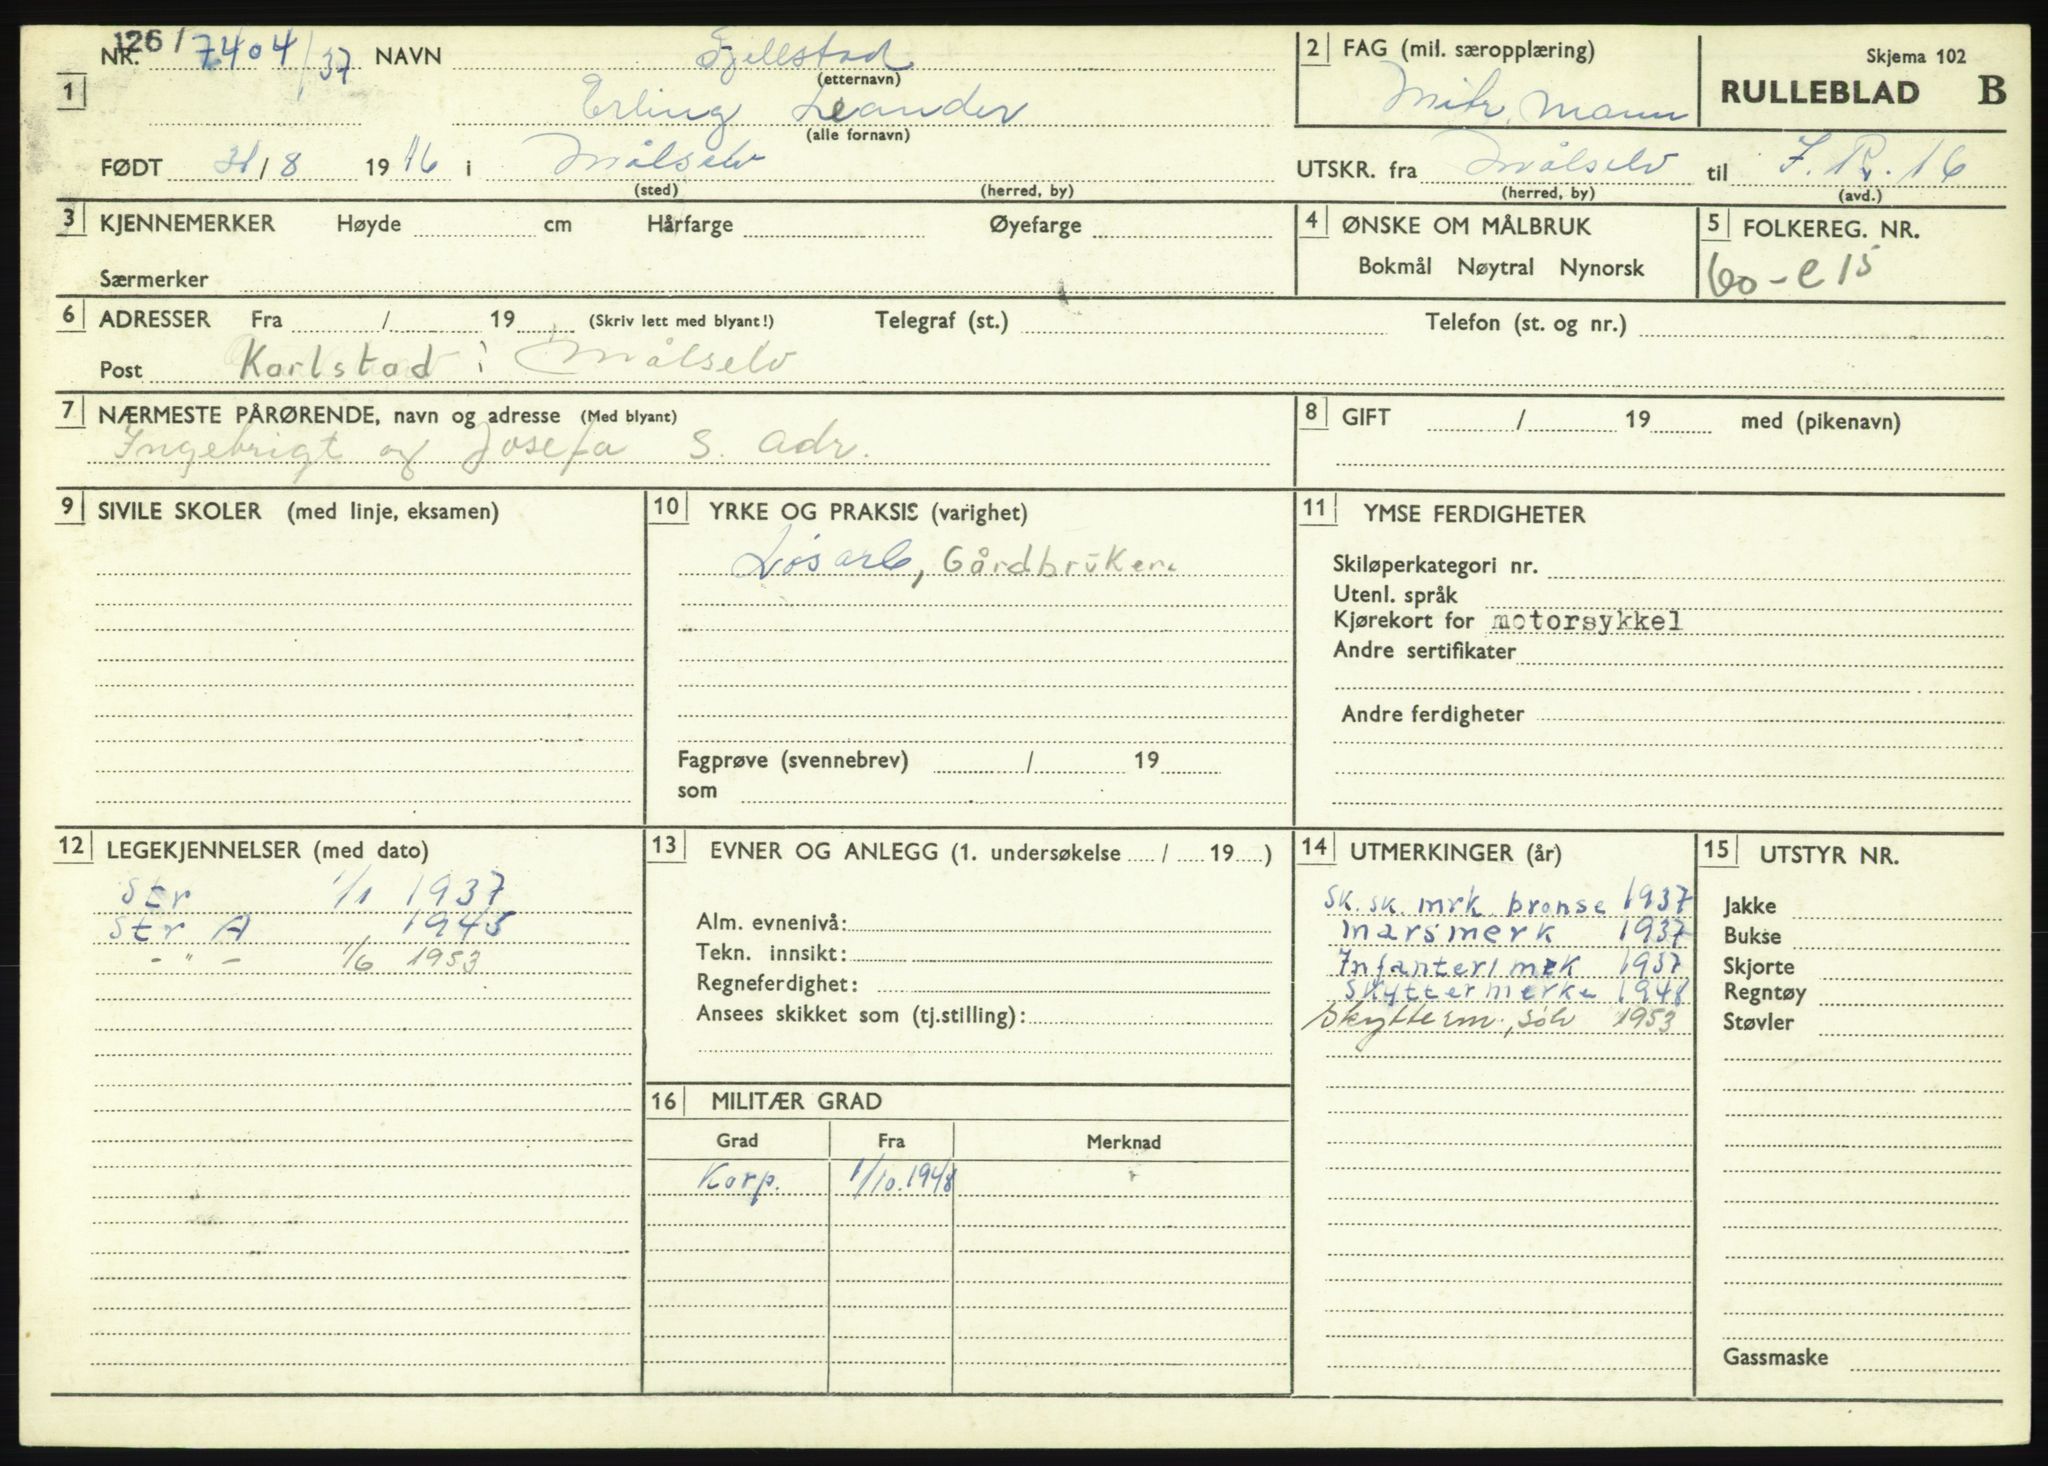 NR. 126 / 7404/37 NAVN Fjellstad
(etternavn)
1 Erling Leander
(alle fornavn)
FØDT 31/8 1916 i Målselv
(sted) (herred, by)
2 FAG (mil. særopplæring)
Mitr. mann
Skjema 102
RULLEBLAD B
UTSKR. fra Målselv til I.R. 16
(herred, by) (avd.)
3 KJENNEMERKER Høyde cm Hårfarge Øyefarge
Særmerker
4 ØNSKE OM MÅLBRUK
Bokmål Nøytral Nynorsk
5 FOLKEREG. NR.
60-e15
6 ADRESSER Fra / 19 (Skriv lett med blyant!) Telegraf (st.) Telefon (st. og nr.)
Post Karlstad i Målselv
7 NÆRMESTE PÅRØRENDE, navn og adresse (Med blyant)
Ingebrigt og Josefa S. adr.
8 GIFT / 19 med (pikenavn)
9 SIVILE SKOLER (med linje, eksamen)
10 YRKE OG PRAKSIS (varighet)
Løsarb, Gårdbruker.
Fagprøve (svennebrev) / 19
som
11 YMSE FERDIGHETER
Skiløperkategori nr.
Utenl. språk
Kjørekort for motorsykkel
Andre sertifikater
Andre ferdigheter
12 LEGEKJENNELSER (med dato)
Str 1/1 1937
Str A 1945
- " - 1/6 1953
13 EVNER OG ANLEGG (1. undersøkelse / 19 )
Alm. evnenivå:
Tekn. innsikt:
Regneferdighet:
Ansees skikket som (tj.stilling):
14 UTMERKINGER (år)
Sk. sk. mrk. bronse 1937
marsmerk 1937
Infanterimrk 1937
Skyttermerke 1948
Skytterm., sølv 1953
15 UTSTYR NR.
Jakke
Bukse
Skjorte
Regntøy
Støvler
Gassmaske
16 MILITÆR GRAD
Grad Fra Merknad
Korp. 1/10.1948